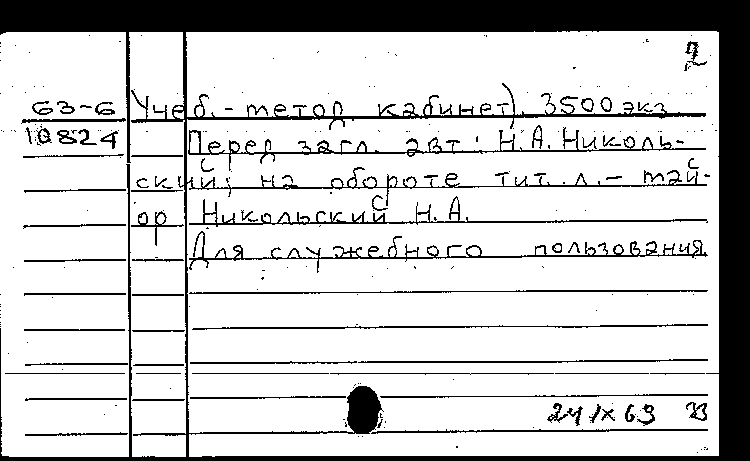 2
63-6 Учеб.-метод. кабинет). 3500 экз
10824 Перед загл. авт: Н.А. Николь-
ский; на обороте тит. л.- май-
ор Никольский Н.А.
Для служебного пользования
24 IX 63